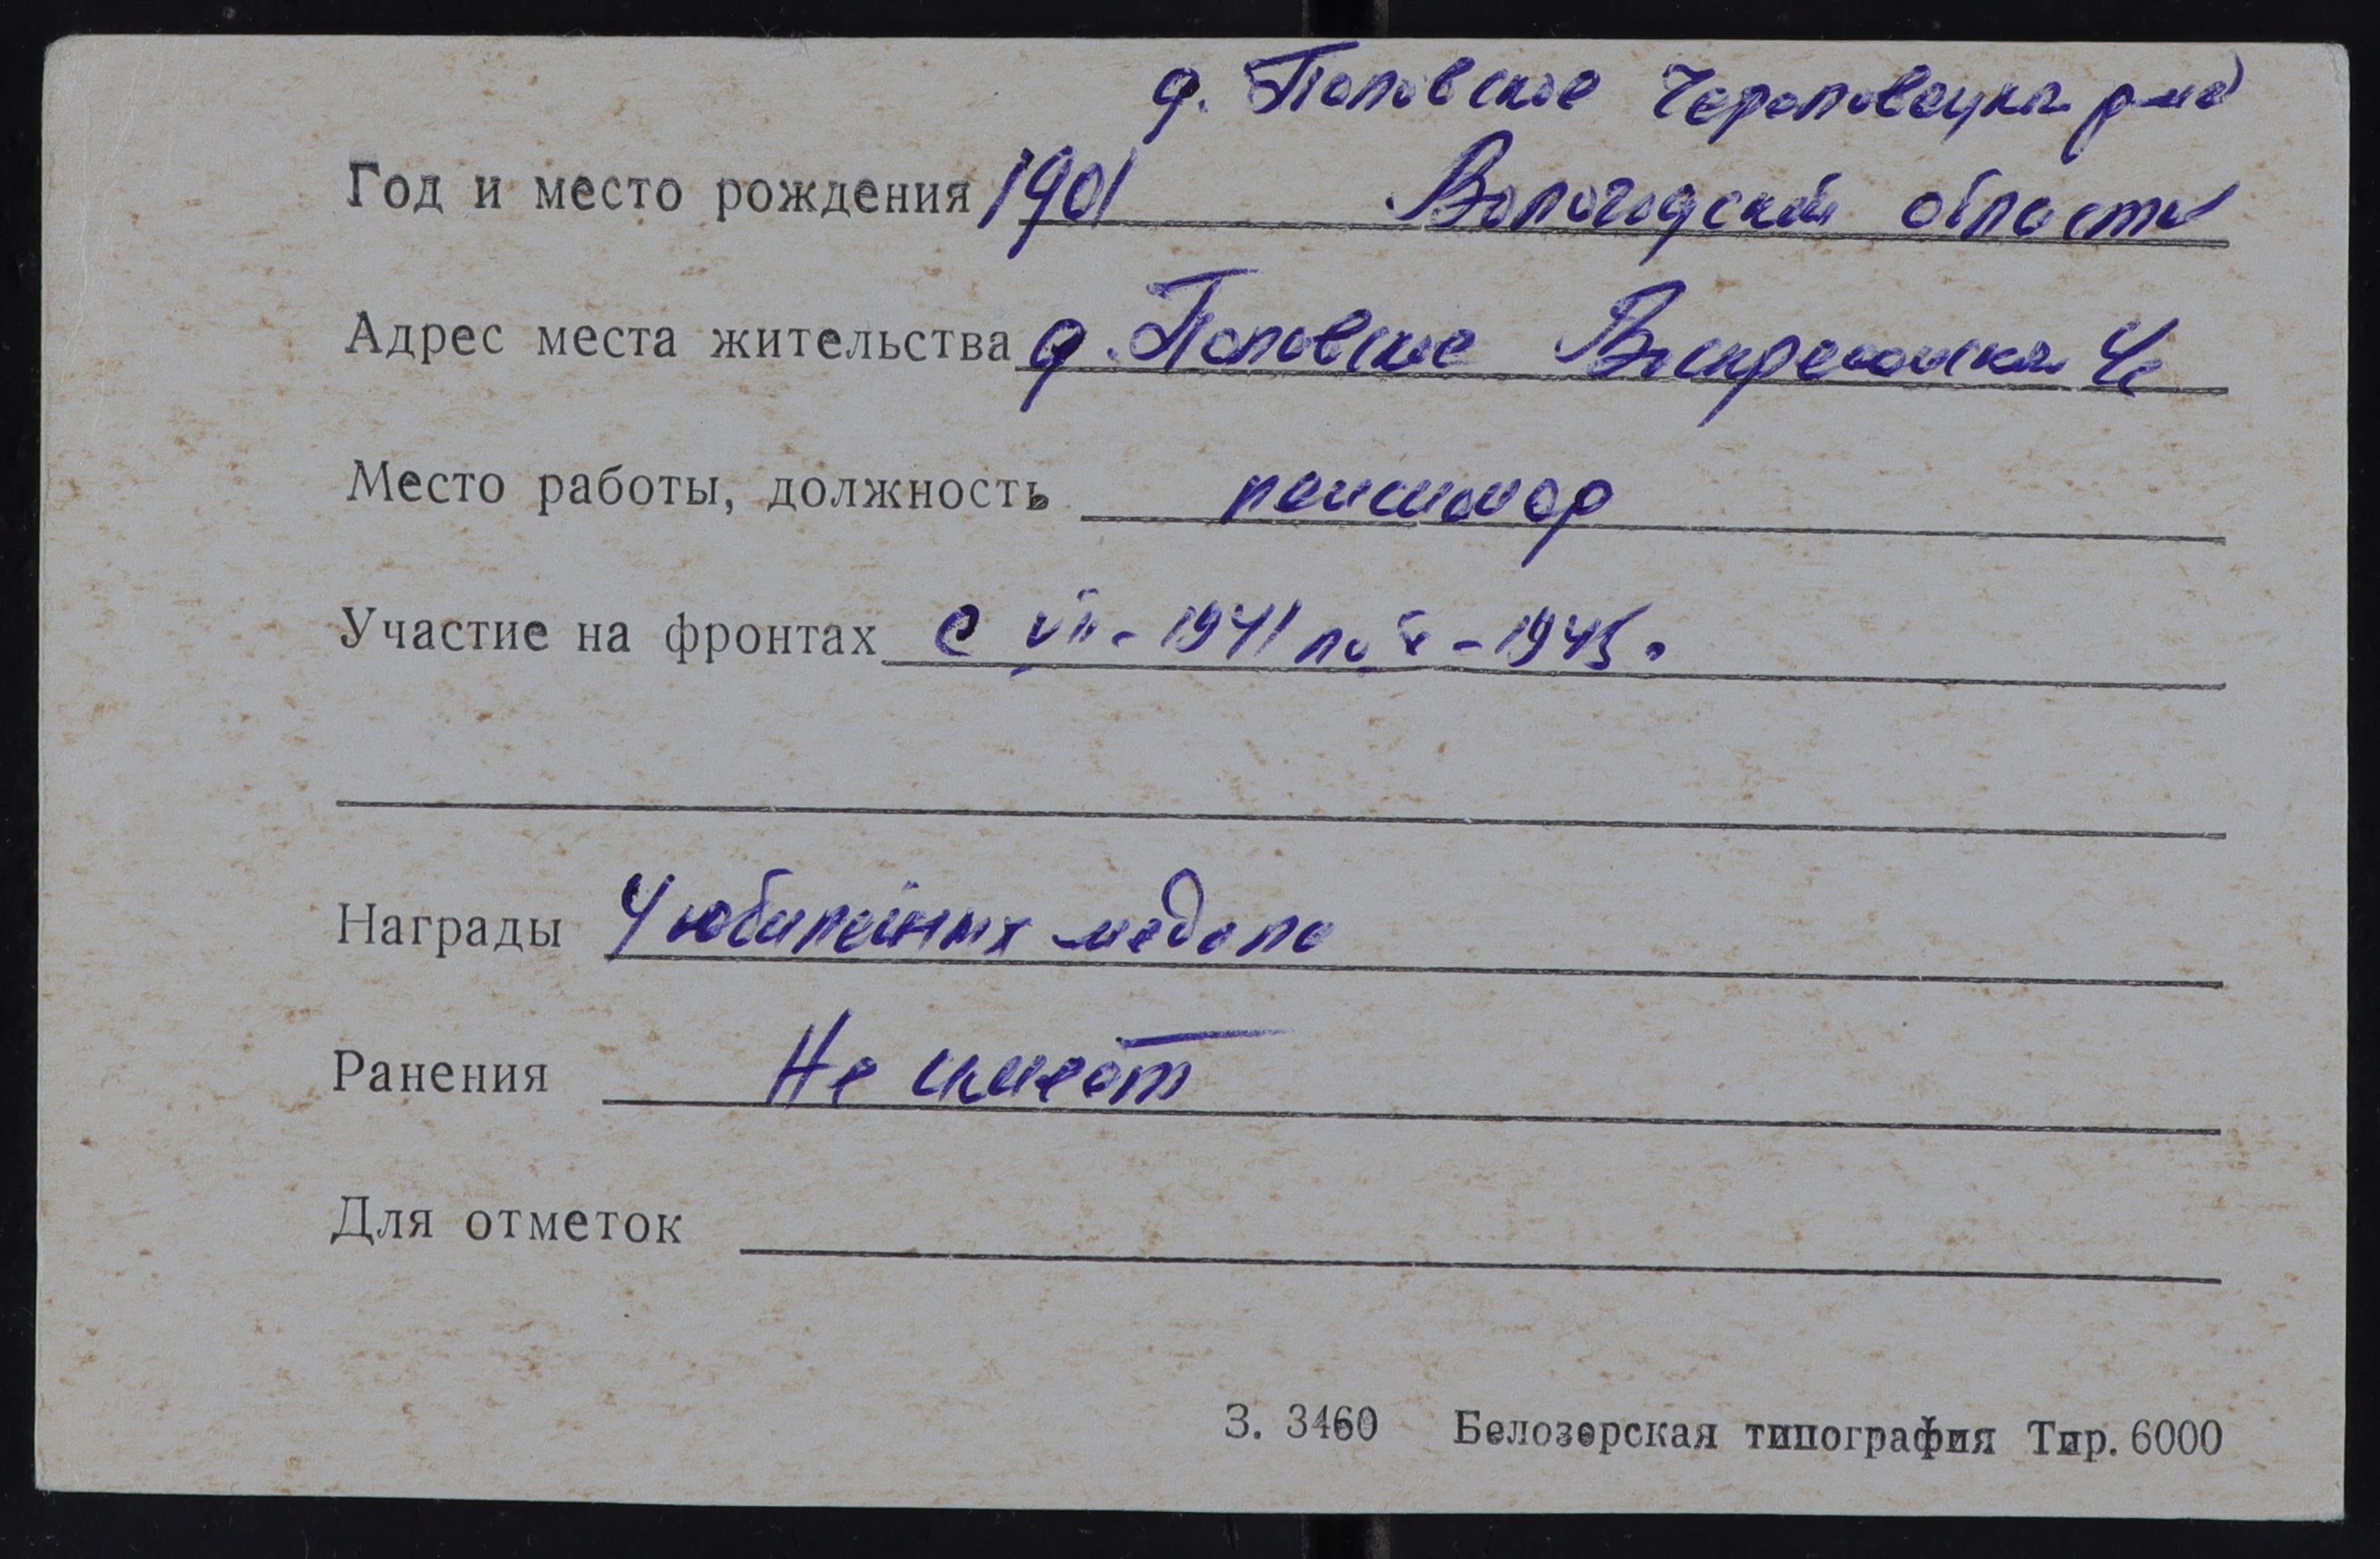 д. Поповское Череповецка р-на
Год и место рождения 1901 Вологодской области
Адрес места жительства д. Поповское Воскресенска Че
Место работы, должность пенсионер
Участие на фронтах с VII - 1941 по X - 1945.
Награды 4 юбилейных медали
Ранения Не имеет
Для отметок
З. 3460 Белозерская типография Тир. 6000